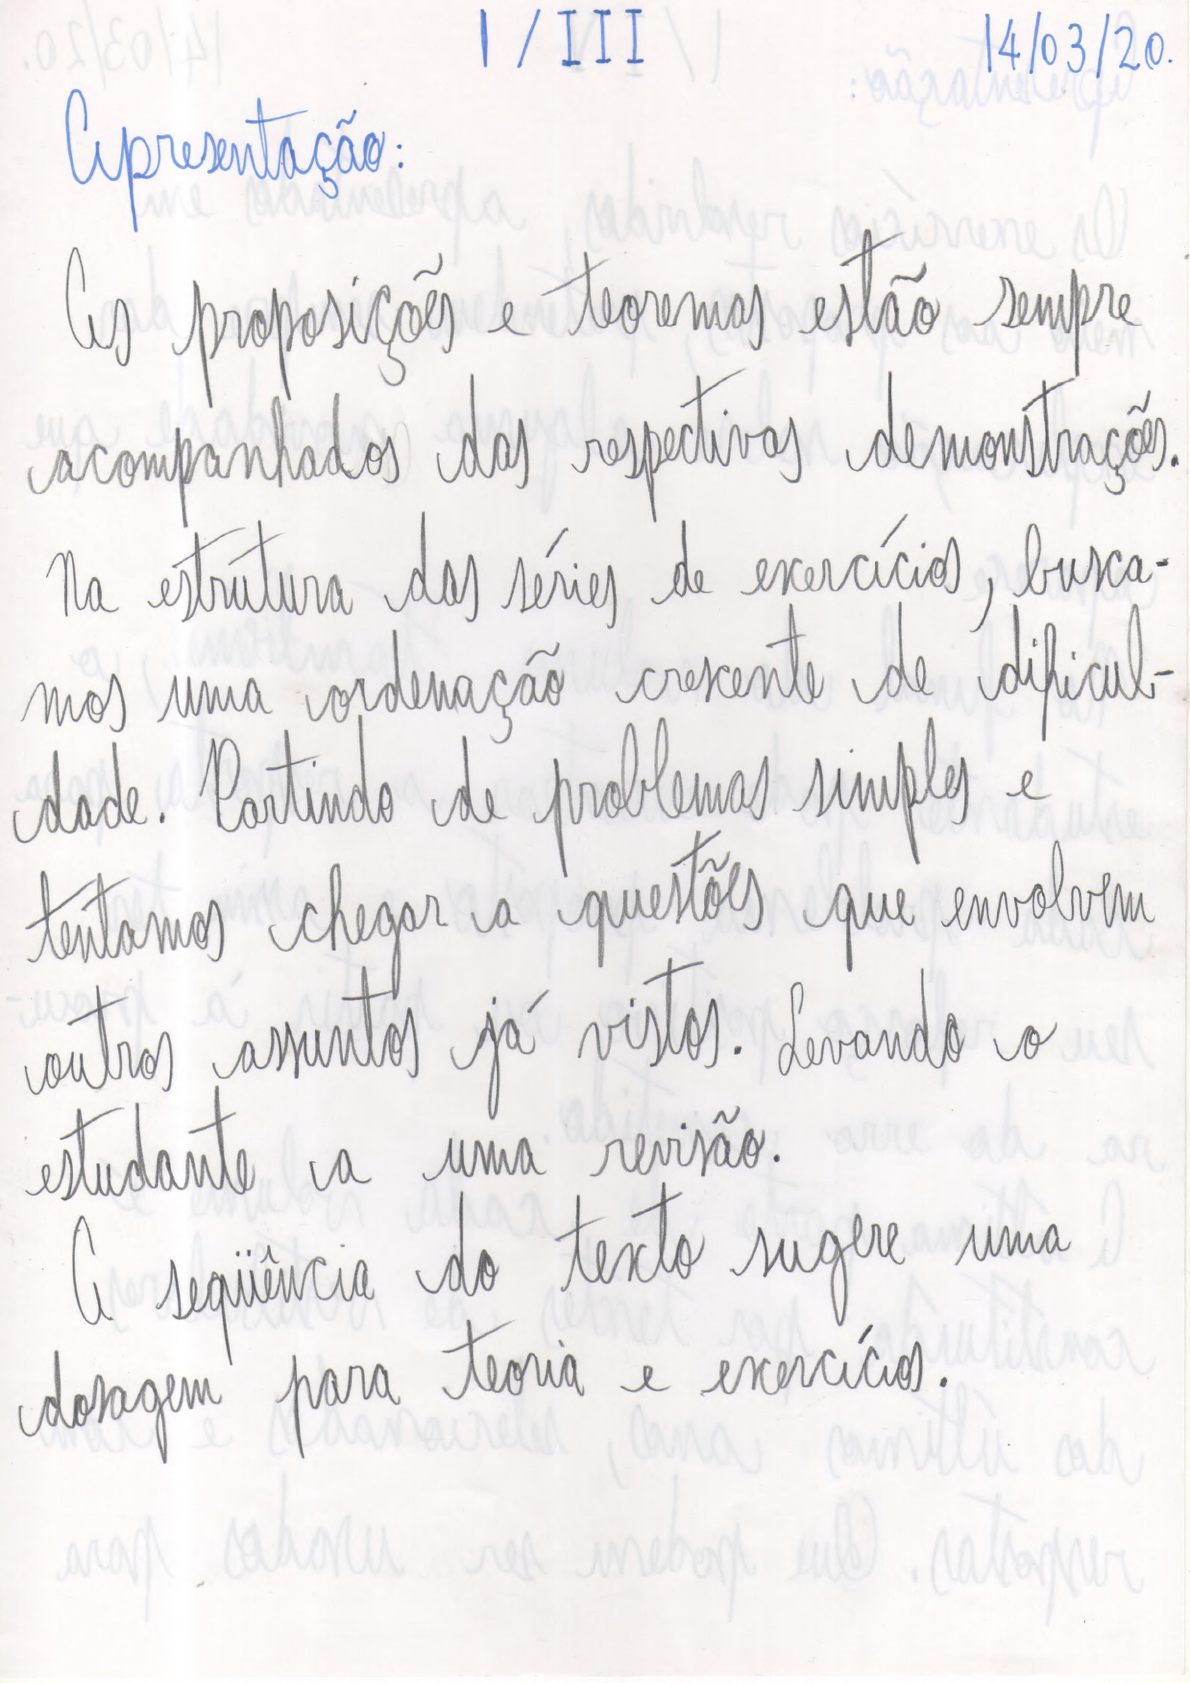 1 / III 14/03/20.
Apresentação:
As proposições e teoremas estão sempre
acompanhados das respectivas demonstrações.
Na estrutura das séries de exercícios, busca-
mos uma ordenação crescente de dificul-
dade. Partindo de problemas simples e
tentamos chegar a questões que envolvem
outros assuntos já vistos. Levando o
estudante a uma revisão.
A seqüência do texto sugere uma
dosagem para teoria e exercícios.